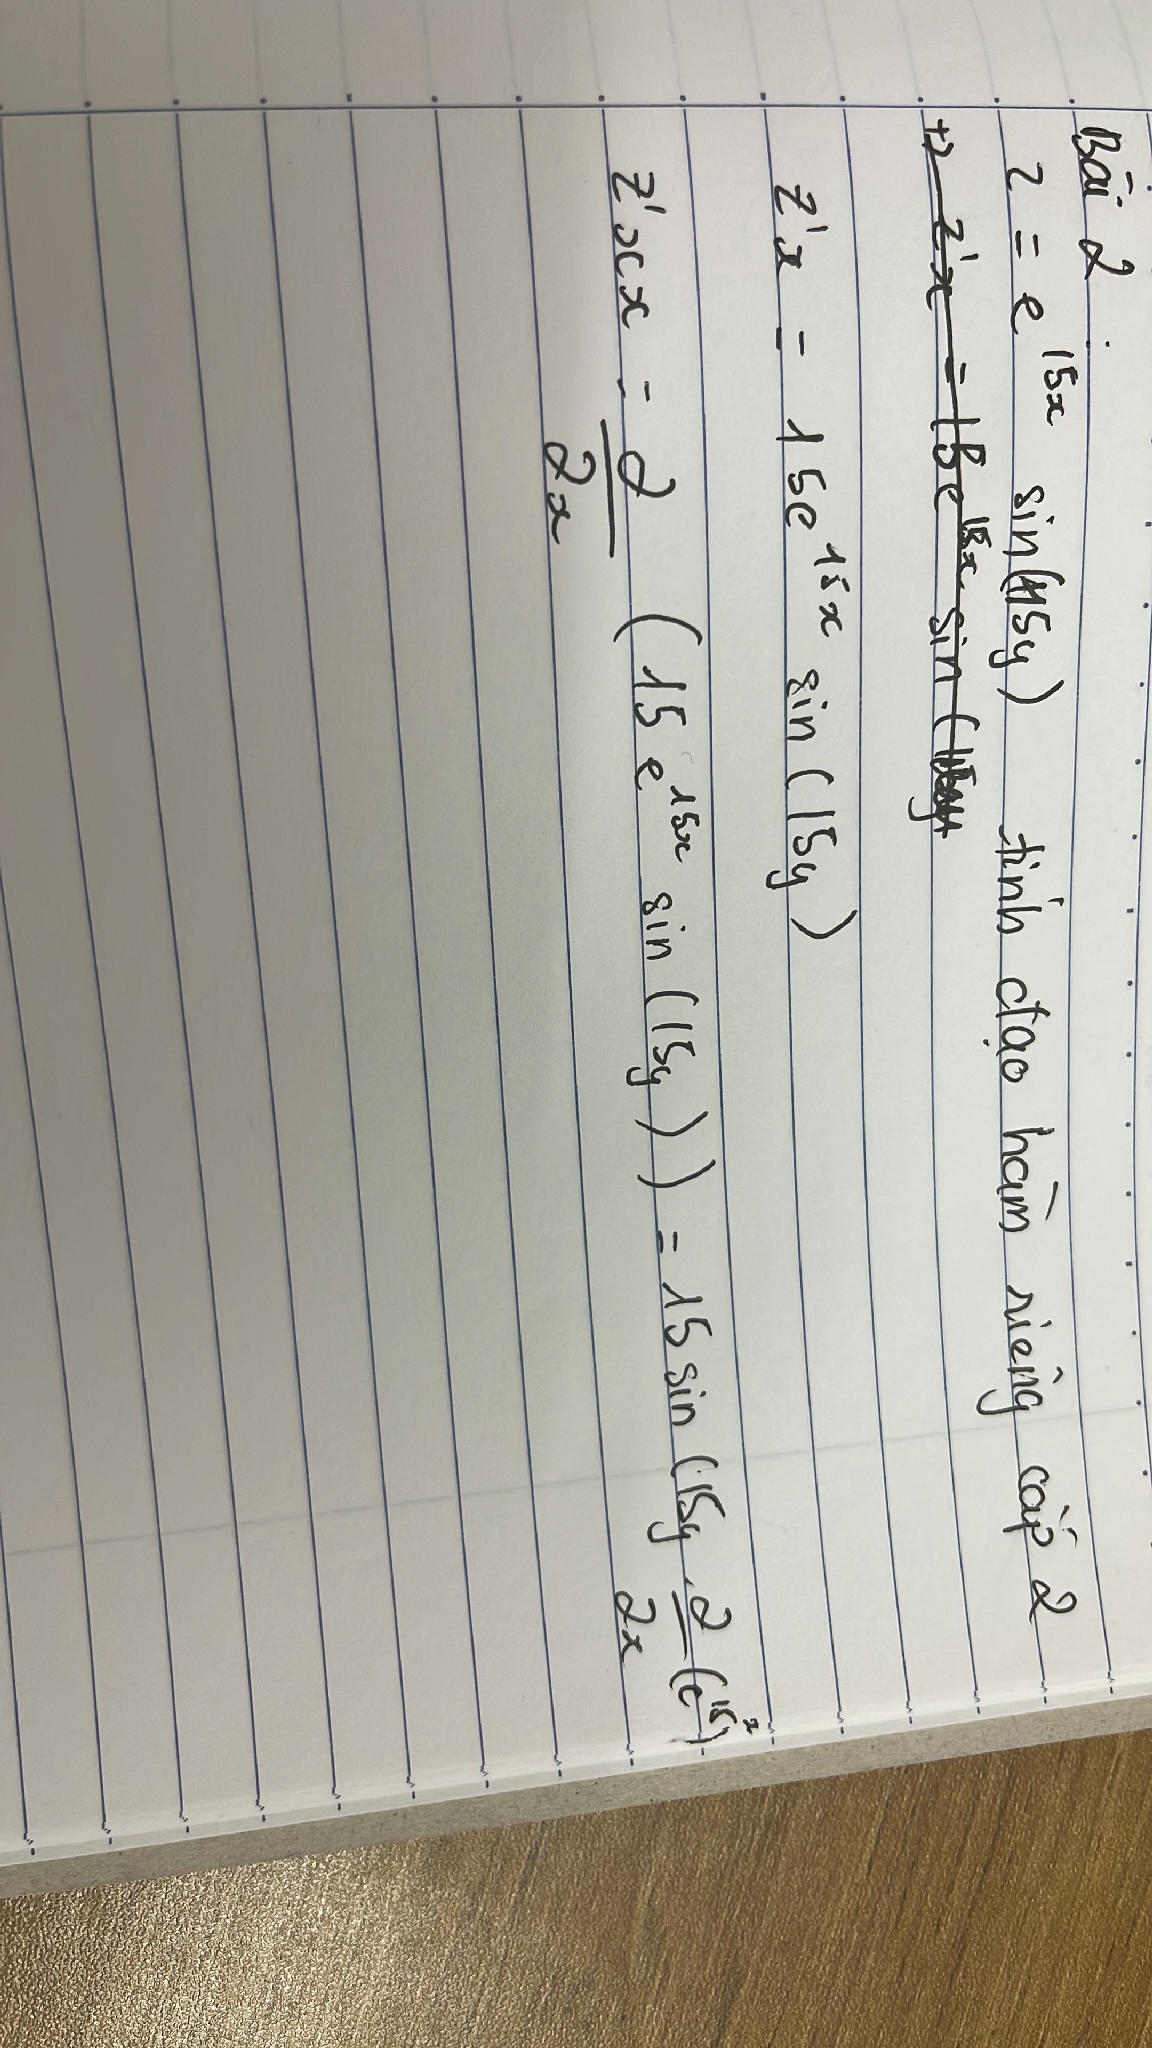 Bài 2.
z = e^15x sin(15y) tính đạo hàm riêng cấp 2
z'x = 15e^15x sin(15y)
z'xx = ∂/∂x (15 e^15x sin(15y)) = 15 sin(15y ∂/∂x (e^15)^x